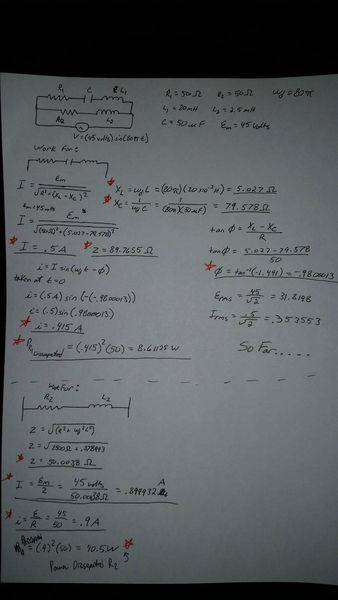 R₁ C L₁
R₂ L₂
V=(45 volts) sin(80πt)
R₁ = 50Ω R₂ = 50Ω ω = 80π
L₁ = 20mH L₂ = 2.5mH
C = 50 μF Em = 45 volts
Work For:
I = Em / √(R²+(XL-XC)²)
Em = 45 volts
I = Em / √((50Ω)²+(5.027-79.578)²)
I = .5A Z = 89.7655 Ω
i = I sin(ωt - ϕ)
taken at t=0
i = (.5A) sin(-(-.9800013))
i = (.5) sin(.9800013)
i = .415 A
P Dissipated = (.415)²(50) = 8.61125 W
XL = ωL = (80π)(20×10⁻³H) = 5.027 Ω
XC = 1/ωC = 1/(80π)(50μF) = 79.578 Ω
tan ϕ = XL - XC / R
tan ϕ = 5.027-79.578 / 50
ϕ = tan⁻¹(-1.491) = -.9800013
Erms = 45/√2 = 31.8198
Irms = .5/√2 = .353553
So Far.....
Work For:
R₂ L₂
Z = √(R²+ω²L²)
Z = √(2500Ω + .378993)
Z = 50.0038 Ω
I = Em/Z = 45 volts/50.0038Ω = .899932 A
i = E/R = 45/50 = .9 A
= (.9)²(50) = 40.5W
Power Dissipated R₂